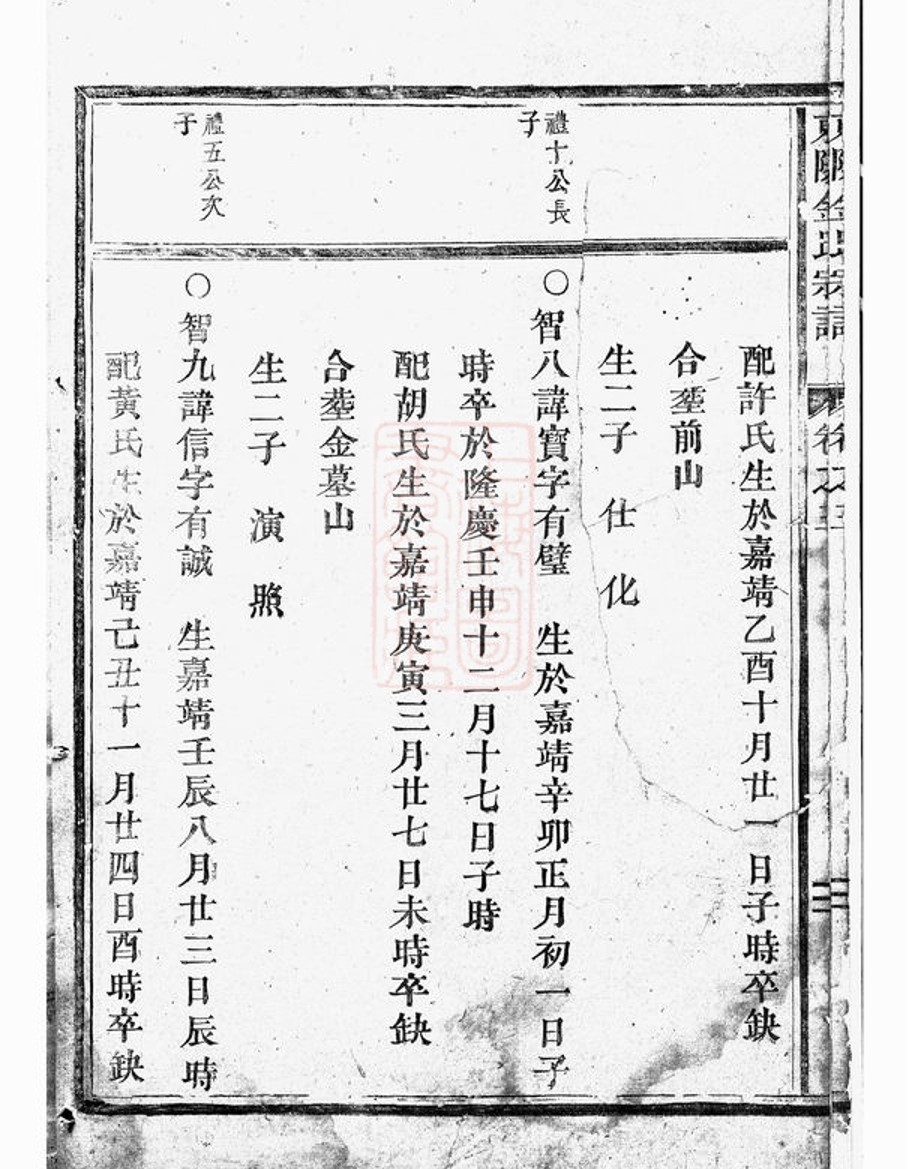 東關金氏宗譜
卷之三
配許氏生於嘉靖乙酉十月廿一日子時卒缺
合塟前山
生二子　仕　化
禮十公長
子
〇智八諱寶字有璧　生於嘉靖辛卯正月初一日子
時卒於隆慶壬申十二月十七日子時
配胡氏生於嘉靖庚寅三月廿七日未時卒缺
合塟金墓山
生二子　演　照
禮五公次
子
〇智九諱信字有誠　生嘉靖壬辰八月廿三日辰時
配黃氏生於嘉靖己丑十一月廿四日酉時卒缺